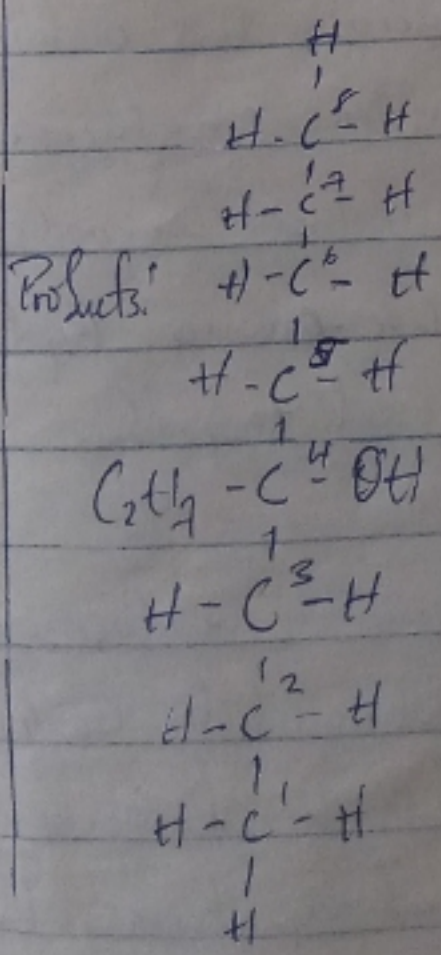 H
|
H - C⁸ - H
|
H - C⁷ - H
|
Products: H - C⁶ - H
|
H - C⁵ - H
|
C₂H₇ - C⁴ - OH
|
H - C³ - H
|
H - C² - H
|
H - C¹ - H
|
H